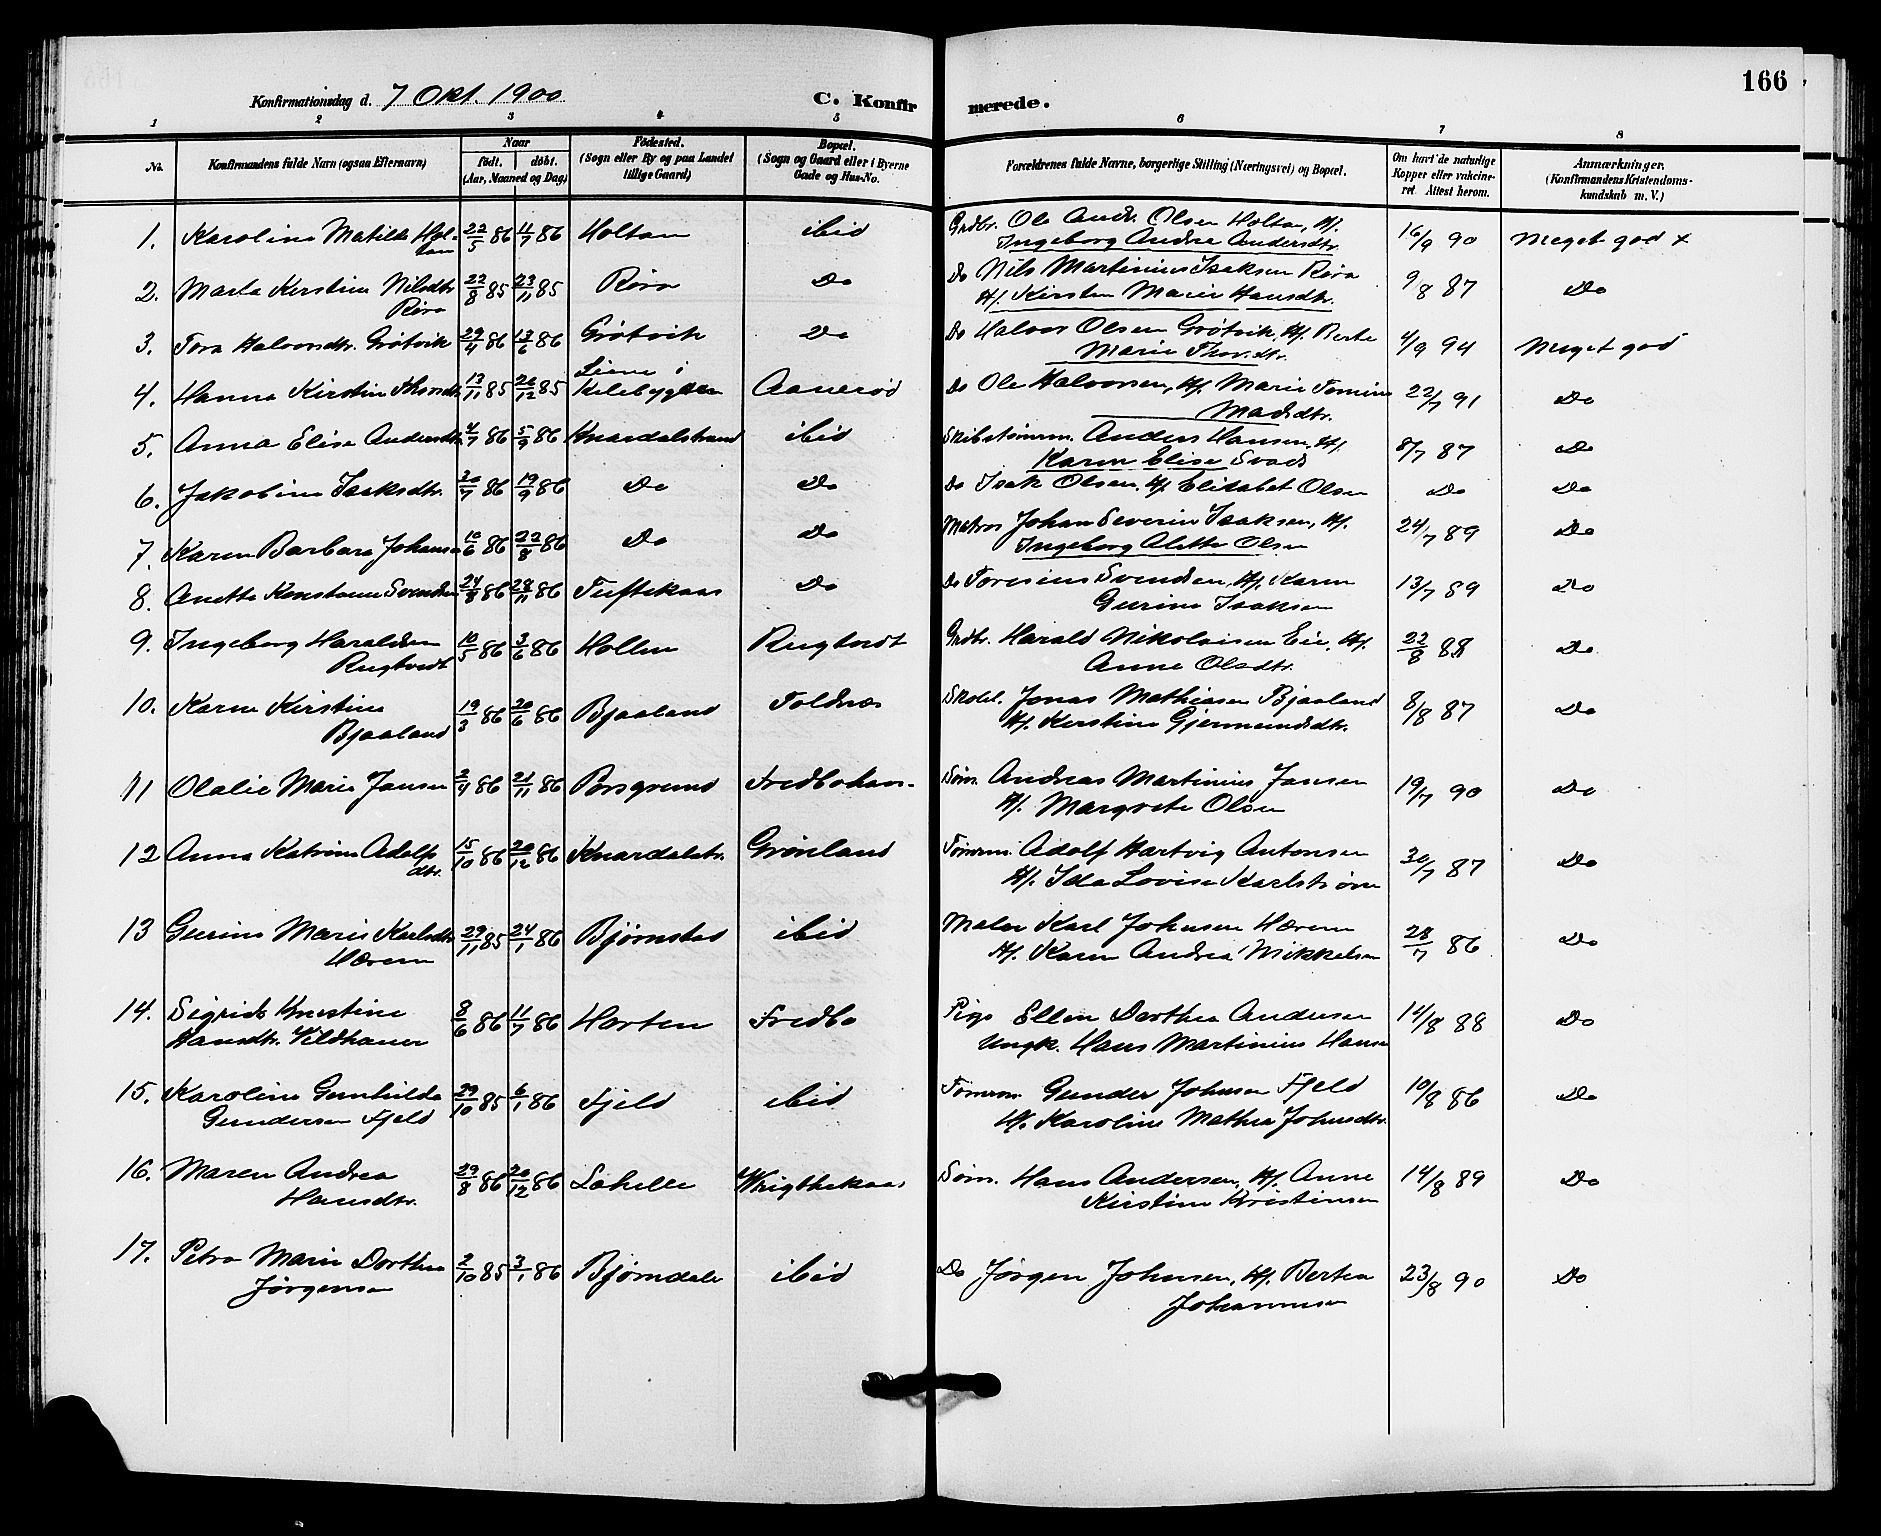 166
Konfirmationsdag d. 7 Okt. 1900
C. Konfirmerede.
1 2 3 4 5 6 7 8
No. Konfirmandens fulde Navn (ogsaa Efternavn) Naar født. døbt. (Aar, Maaned og Dag) Fødested. (Sogn eller By og paa Landet tillige Gaard) Bopæl. (Sogn og Gaard eller i Byerne Gade og Hus-No. Forældrenes fulde Navne, borgerlige Stilling (Næringsvei) og Bopæl. Om havt de naturlige Kopper eller vakcineret Attest herom. Anmærkninger. (Konfirmandens Kristendomskundskab m. V.)
1. Karoline Matilde Holtan 22/5 86 11/7 86 Holtan ibid Grdbr. Ole Andr. Olsen Holtan, H/.
Ingeborg Andrea Andersdtr. 16/9 90 Meget god x
2. Marta Kirstine Nilsdtr. Røra 22/8 85 23/11 85 Røra Do Do Nils Martinius Isaksen Røra
H/. Kirsten Marie Hansdtr. 9/8 87 Do
3. Tora Halvorsdtr. Grøtvik 29/4 86 13/6 86 Grøtvik Do Do Halvor Olsen Grøtvik, H/. Berte
Marie Thorsdtr. 4/9 94 Meget god
4. Hanna Kirstine 13/11 85 20/12 85 Liene i
Eidebygden Aanerød Do Ole Halvorsen, H/. Marie Tomine
Madsdtr. 22/7 91 Do
5. Anna Elise Andersdtr. 4/7 86 5/9 86 Knardalstrand ibid Skibstømrm. Anders Hansen, H/.
Karen Elise Svads 8/7 87 Do
6. Jakobine Isaksdtr. 20/7 86 19/9 86 Do Do Do Isak Olsen, H/. Elisabet Olsen Do Do
7. Karen Barbara Johansen 10/6 86 22/8 86 Do Do Matros Johan Severin Isaksen, H/.
Ingeborg Alette Olsen 24/7 89 Do
8. Anette Konstanse Svendsen 24/8 86 28/11 86 Tuftekaas Do Do Toresius Svendsen, H/. Karen
Gurine Isaksen 13/7 89 Do
9. Ingeborg Haraldsen
Rugtvedt 10/5 86 3/6 86 Hollen Rugtvedt Grdbr. Harald Nikolaisen Eie, H/.
Anne Olsdtr. 22/8 88 Do
10. Karen Kirstine
Bjaaland 19/3 86 20/6 86 Bjaaland Toldnæs Skolel. Jonas Mathiasen Bjaaland
H/. Kirstine Gjermundsdtr. 8/8 87 Do
11 Olalie Marie Jansen 2/4 86 21/11 86 Porsgrund Fredbohavn. Søm. Andreas Martinius Jansen
H/. Margrete Olsen 19/7 90 Do
12 Anna Katrine Adolfsdtr. 15/10 86 20/12 86 Knardalstr. Grønland Tømrm. Adolf Hartvig Antonsen
H/. Ida Lovise Karlstrøm 30/7 87 Do
13 Gurine Marie Karlsdtr.
Hærem 29/11 85 24/1 86 Bjørnstad ibid Maler Karl Johnsen Hærem
H/. Karen Andrea Mikkelsen 28/7 86 Do
14. Sigrid Kirstine
Hansdtr. Vildhauer 8/6 86 11/7 86 Horten Fredbo Pige Ellen Dorthea Andersen
Ungk. Hans Martinius Hansen 14/8 88 Do
15. Karoline Gunhilda
Gundersen Fjeld 29/10 85 6/1 86 Fjeld ibid Tømrm. Gunder Johnsen Fjeld
H/. Karoline Mathea Johnsdtr. 10/8 86 Do
16. Maren Andrea
Hansdtr. 29/8 86 20/12 86 Lahelle Wrigthekaas Søm. Hans Andersen, H/. Anne
Kirstine Kristensen 14/8 89 Do
17. Petra Marie Dorthea
Jørgensen 2/10 85 3/1 86 Bjørndale ibid Do Jørgen Johnsen, H/. Bertea
Johannesen 23/8 90 Do